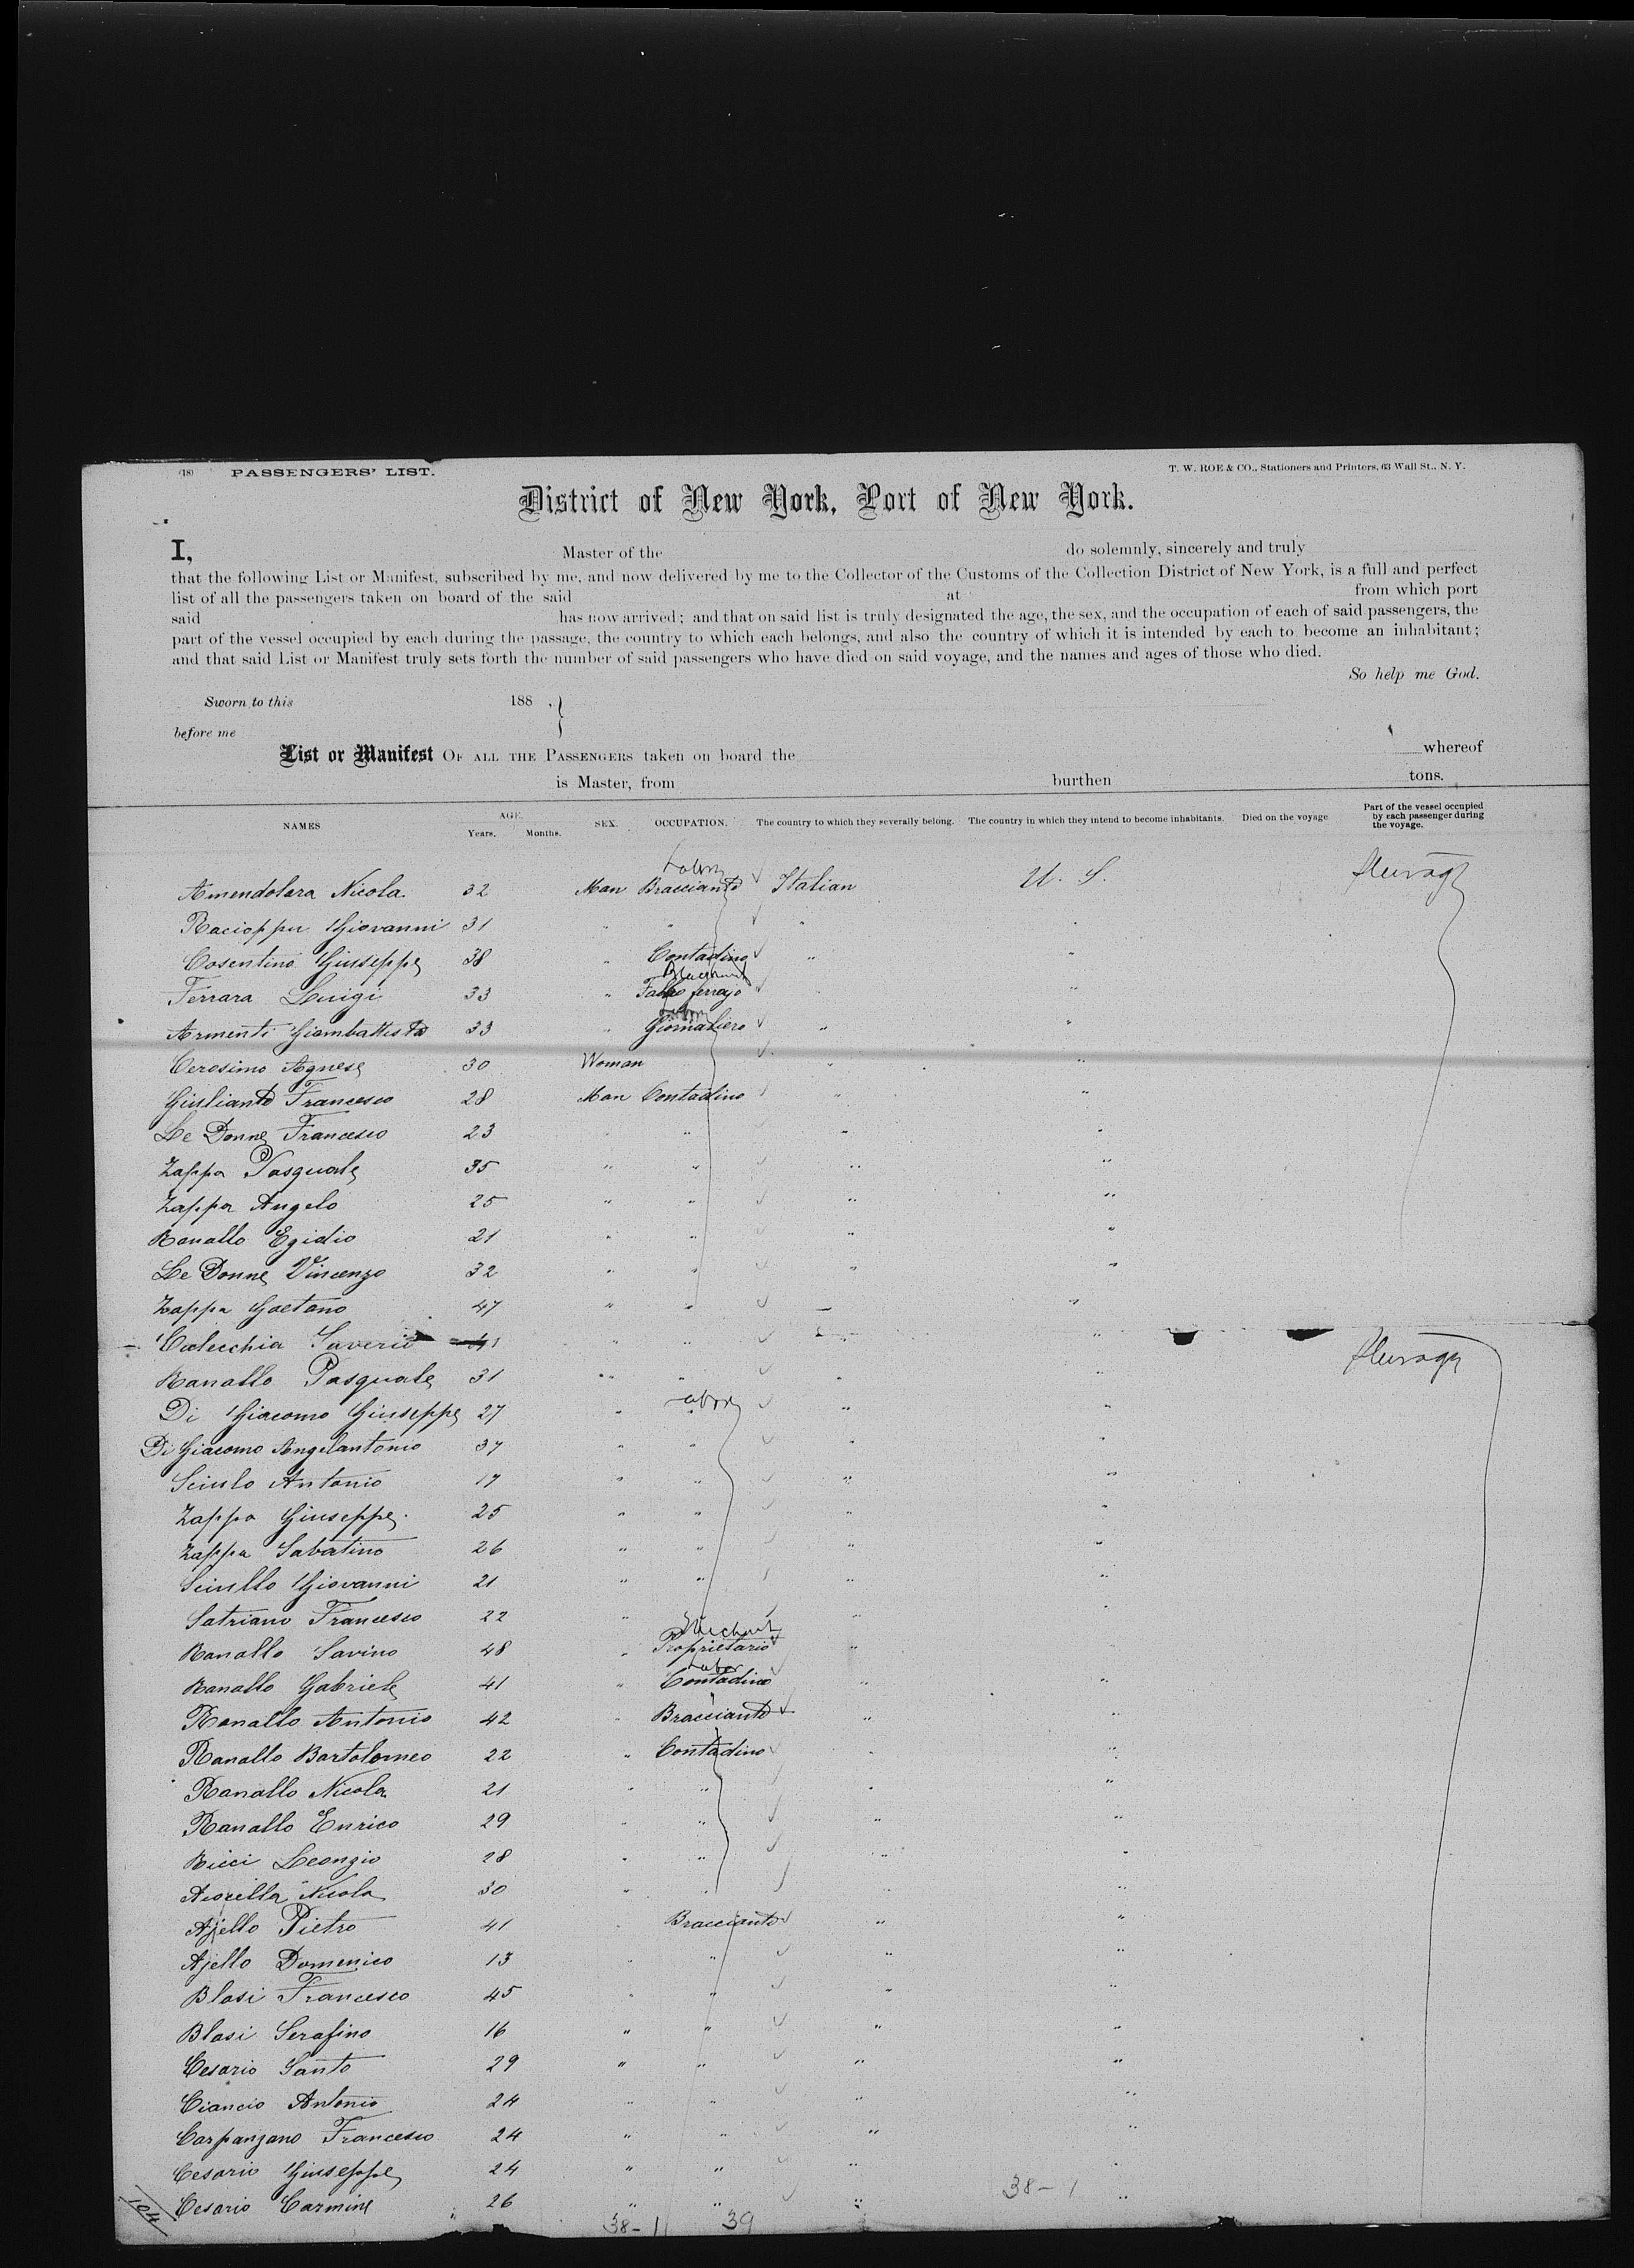 (18) PASSENGERS' LIST. T. W. ROE & CO., Stationers and Printers, 63 Wall St., N. Y.
District of New York, Port of New York.
I, Master of the do solemnly, sincerely and truly
that the following List or Manifest, subscribed by me, and now delivered by me to the Collector of the Customs of the Collection District of New York, is a full and perfect
list of all the passengers taken on board of the said at from which port
said has now arrived; and that on said list is truly designated the age, the sex, and the occupation of each of said passengers, the
part of the vessel occupied by each during the passage, the country to which each belongs, and also the country of which it is intended by each to become an inhabitant;
and that said List or Manifest truly sets forth the number of said passengers who have died on said voyage, and the names and ages of those who died.
So help me God.
Sworn to this 188 .
before me
List or Manifest OF ALL THE PASSENGERS taken on board the whereof
is Master, from burthen tons.
NAMES AGE. Years. Months. SEX. OCCUPATION. The country to which they severally belong. The country in which they intend to become inhabitants. Died on the voyage Part of the vessel occupied by each passenger during the voyage.
Labor
Amendolara Nicola 32 Man Bracciante Italian U. S. Steerage
Racioppu Giovanni 31 " " " "
Cosentino Giuseppe 38 " Contadino " "
Ferrara Luigi 33 " Fabbro ferrajo " "
Armenti Giambattista 33 " Giornaliero " "
Cerosimo Agnese 30 Woman " "
Giuliante Francesco 28 Man Contadino " "
Le Donne Francesco 23 " " " "
Zappa Pasquale 35 " " " "
Zappa Angelo 25 " " " "
Ranallo Egidio 21 " " " "
Le Donne Vincenzo 32 " " " "
Zappa Gaetano 47 " " " "
Colecchia Saverio 41 " " " "
Ranallo Pasquale 31 " " " " Steerage
Labor
Di Giacomo Giuseppe 27 " " " "
Di Giacomo Angelantonio 37 " " " "
Sciulo Antonio 17 " " " "
Zappa Giuseppe 25 " " " "
Zappa Sabatino 26 " " " "
Sciullo Giovanni 21 " " " "
Satriano Francesco 22 " " "
Ranallo Savino 48 " Proprietario "
Labor
Ranallo Gabriele 41 " Contadino " "
Ranallo Antonio 42 " Bracciante " "
Ranallo Bartolomeo 22 " Contadino " "
Ranallo Nicola 21 " " " "
Ranallo Enrico 29 " " " "
Ricci Leonzio 28 " " " "
Nicola 30 " " " "
Ajello Pietro 41 " Bracciante " "
Ajello Domenico 13 " " " "
Blasi Francesco 45 " " " "
Blasi Serafino 16 " " " "
Cesario Santo 29 " " " "
Ciancio Antonio 24 " " " "
Carpanzano Francesco 24 " " " "
Cesario Giuseppe 24 " " " "
38-1
Cesario Carmine 26 " " " "
104
38-1 39